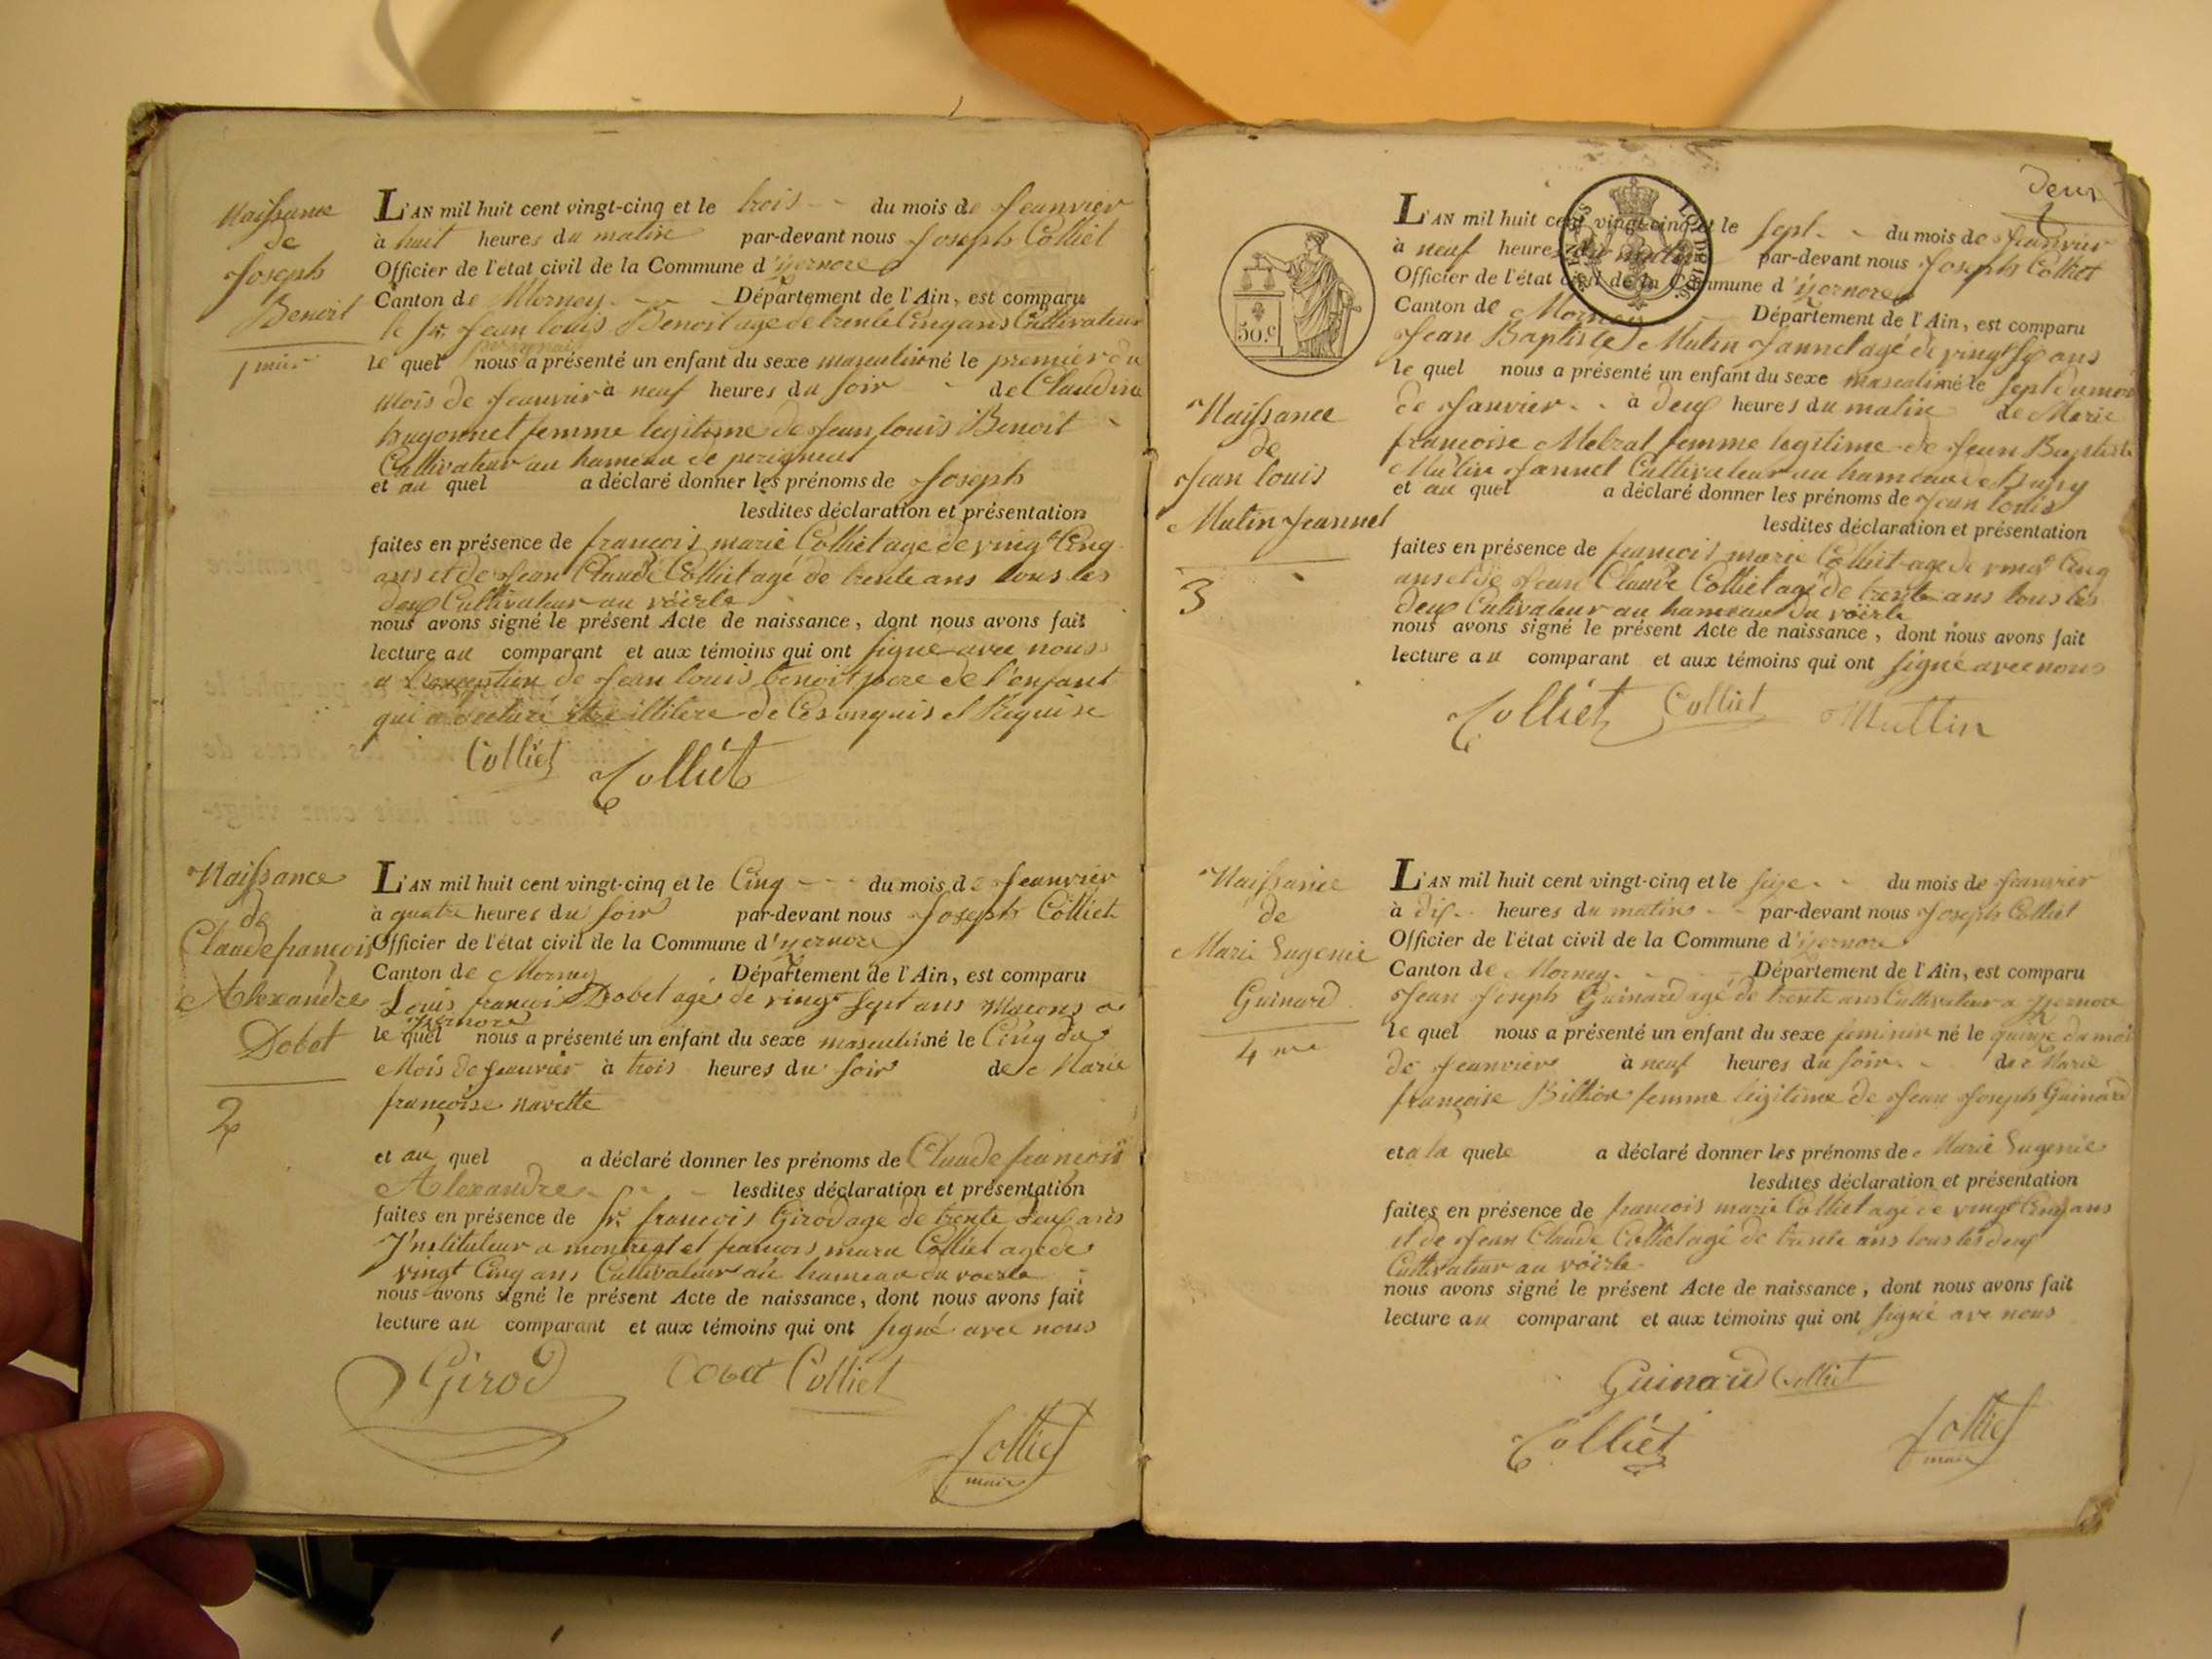 Naissance
de
Joseph
Benoit
1
L'AN mil huit cent vingt-cinq et le trois du mois de Jeanvier
à huit heures du matin par-devant nous Joseph Colliet
Officier de l'état civil de la Commune d'yzernore
Canton de Mornay Département de l'Ain, est comparu
le sr. Jean louis Benoit age de trente Cinq ans Cultivateur
le quel nous a présenté un enfant du sexe masculin né le premier du
mois de Jeanvier à neuf heures du soir de Claudine
hugonnet femme legitime de Jean louis Benoit
Cultivateur au hameau de perignieut
et au quel a déclaré donner les prénoms de Joseph
lesdites déclaration et présentation
faites en présence de francois marie Colliet age de vingt Cinq
ans et de Jean Claude Colliet agé de trente ans tous les
deux Cultivateur au voërle
nous avons signé le présent Acte de naissance, dont nous avons fait
lecture au comparant et aux témoins qui ont signé avec nous
a L'exception de Jean louis benoit pere de l'enfant
qui a declaré être illitere de Ces enquis et Requise
Colliet Colliet
Naissance
de
Claude francois
Alexandre
Dobet
2
L'AN mil huit cent vingt-cinq et le Cinq du mois de Jeanvier
à quatre heures du soir par-devant nous Joseph Colliet
Officier de l'état civil de la Commune d'yzernore
Canton de Mornay Département de l'Ain, est comparu
Louis francois Dobet agé de vingt sept ans Macons a
yzernore
le quel nous a présenté un enfant du sexe masculin né le Cinq du
Mois de Jeanvier à trois heures du soir de Marie
françoise navette
et au quel a déclaré donner les prénoms de Claude francois
Alexandre lesdites déclaration et présentation
faites en présence de sr. francois Girod age de trente deux ans
Instituteur a montreal et francois marie Colliet age de
vingt Cinq ans Cultivateur au hameau du voerle
nous avons signé le présent Acte de naissance, dont nous avons fait
lecture au comparant et aux témoins qui ont signé avec nous
Girod Dobet Colliet
Colliet
maire
deux
50.c
Naissance
de
Jean louis
Mutin Jeannet
3
L'AN mil huit cent vingt-cinq et le sept du mois de Jeanvier
à neuf heures du matin par-devant nous Joseph Colliet
Officier de l'état civil de la Commune d'yzernore
Canton de Mornay Département de l'Ain, est comparu
Jean Baptiste Mutin Jannet agé de vingt six ans
le quel nous a présenté un enfant du sexe masculin né le sept du mois
de Janvier à deux heures du matin de Marie
francoise Melzat femme legitime de Jean Baptiste
Mutin Jannet Cultivateur au hameau de
et au quel a déclaré donner les prénoms de Jean louis
lesdites déclaration et présentation
faites en présence de francois marie Colliet age de vingt Cinq
ans et de Jean Claude Colliet agé de trente ans tous les
deux Cultivateur au hameau du voërle
nous avons signé le présent Acte de naissance, dont nous avons fait
lecture au comparant et aux témoins qui ont signé avec nous
Colliet Colliet Muttin
Naissance
de
Marie Eugenie
Guinard
4me
L'AN mil huit cent vingt-cinq et le seize du mois de Jeanvier
à dix heures du matin par-devant nous Joseph Colliet
Officier de l'état civil de la Commune d'yzernore
Canton de Mornay Département de l'Ain, est comparu
Jean Joseph Guinard agé de trente ans Cultivateur a yzernore
le quel nous a présenté un enfant du sexe feminin né le quinze du mois
de Jeanvier à neuf heures du soir de Marie
françoise Billion femme legitime de Jean Joseph Guinard
et a la quele a déclaré donner les prénoms de Marie Eugenie
lesdites déclaration et présentation
faites en présence de francois marie Colliet agé de vingt Cinq ans
et de Jean Claude Colliet agé de trente ans tous les deux
Cultivateur au voërle
nous avons signé le présent Acte de naissance, dont nous avons fait
lecture au comparant et aux témoins qui ont signé ave nous
Guinard Colliet
Colliet Colliet
maire